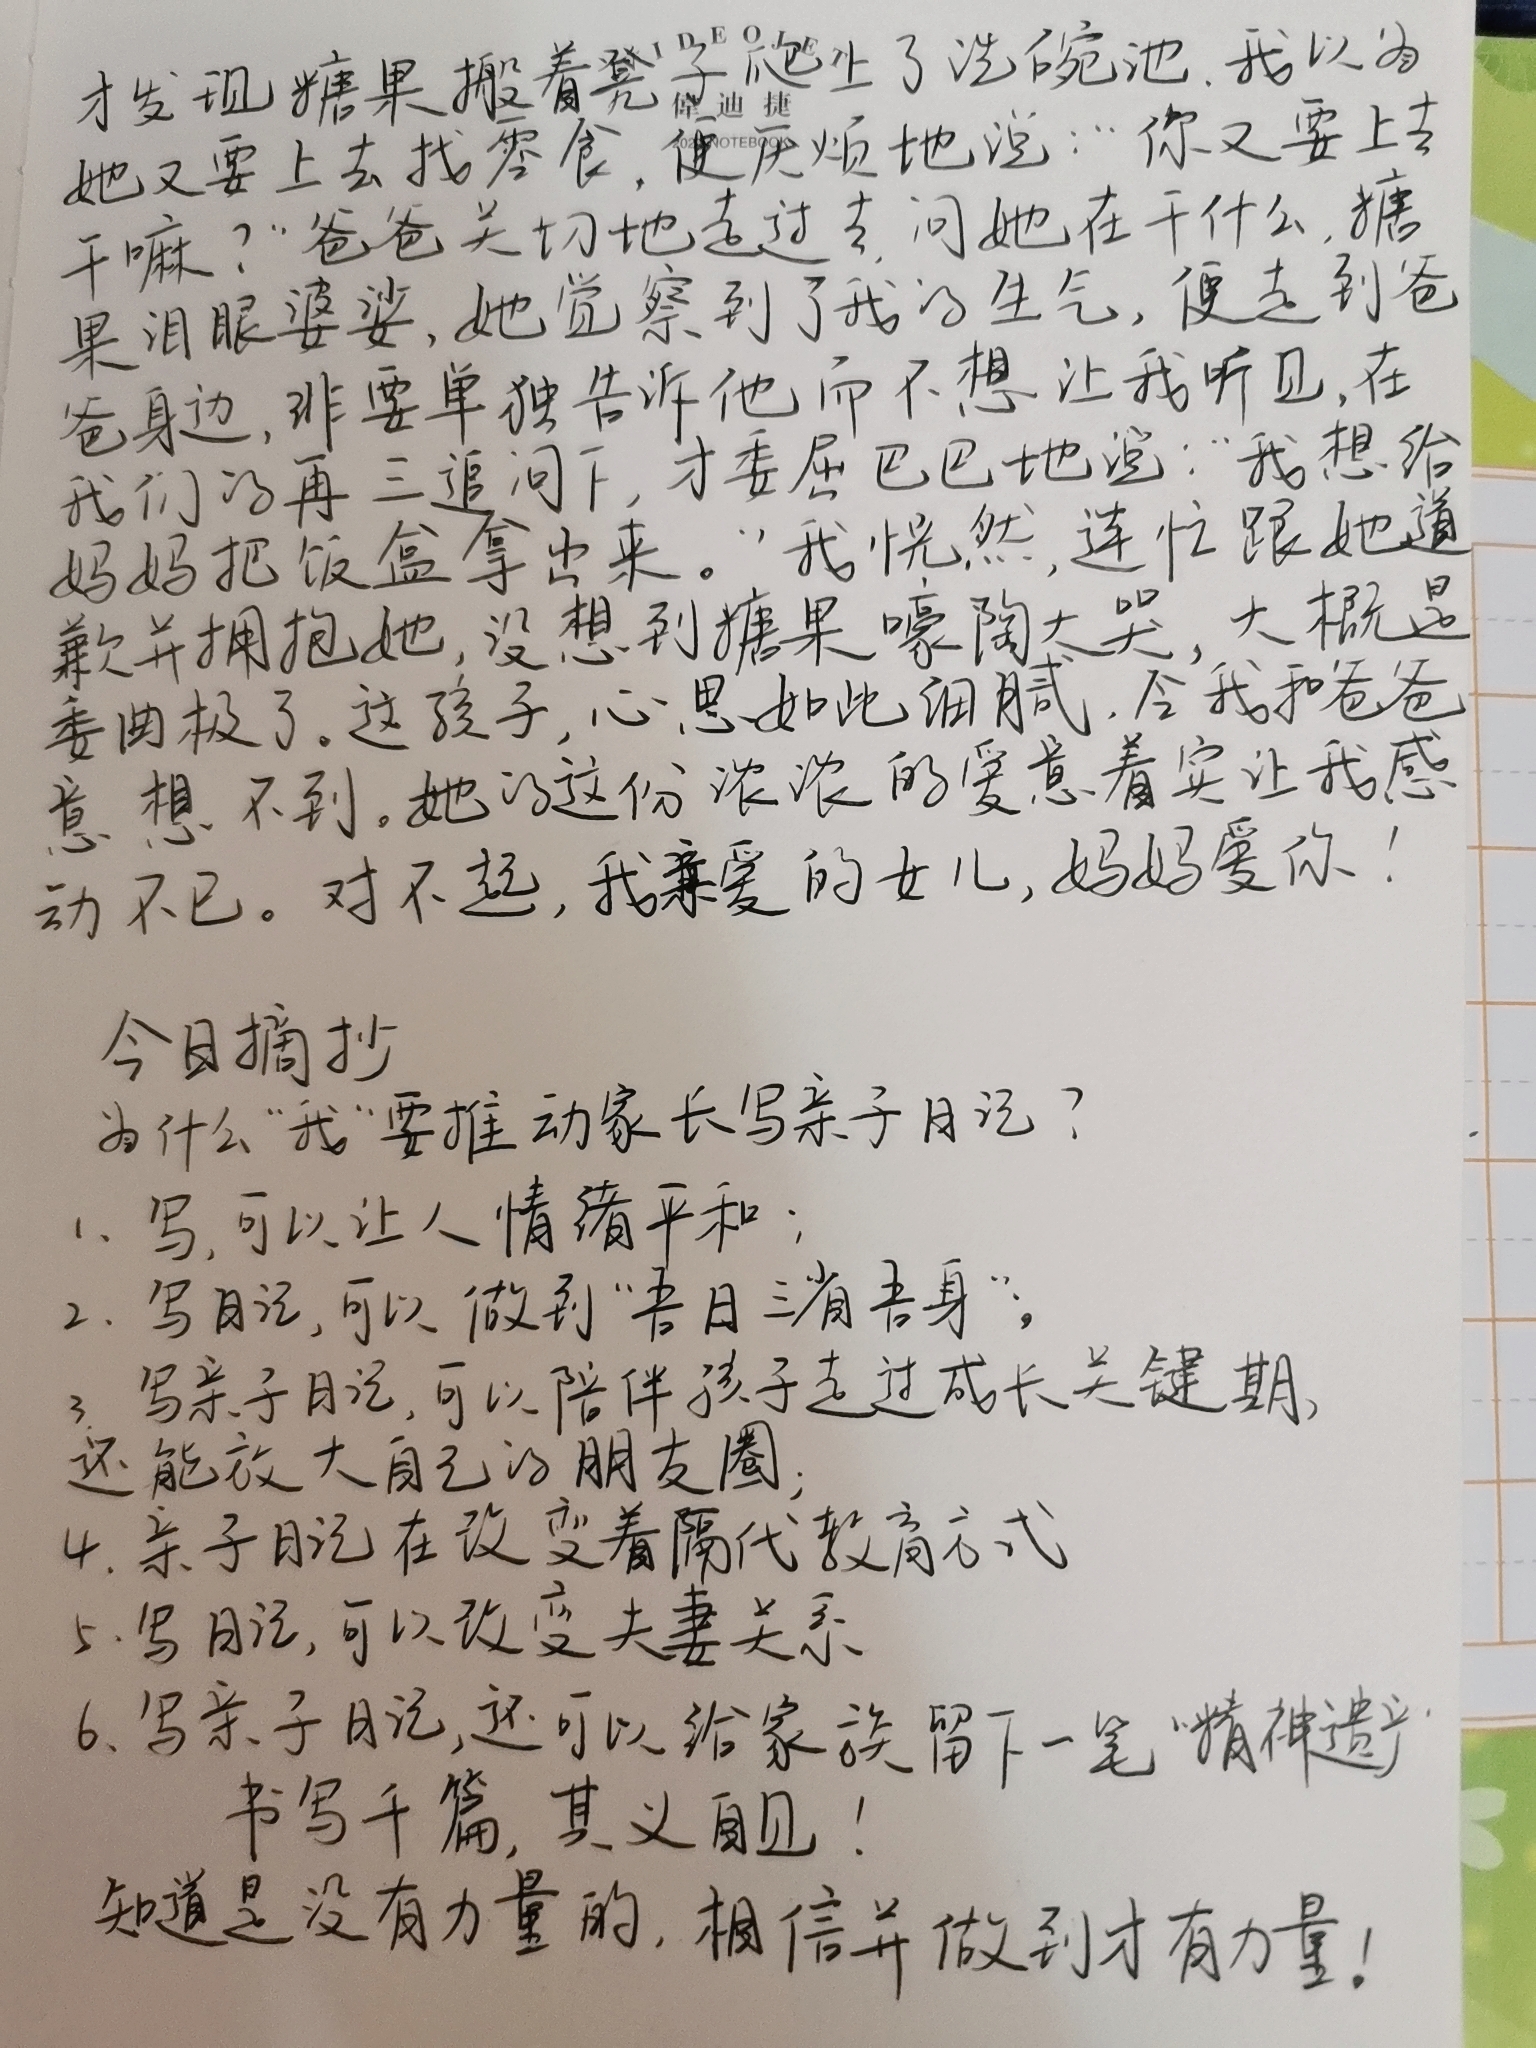 VIDEOJET
偉迪捷
NOTEBOOK
才发现糖果搬着凳子爬上了洗碗池，我以为
她又要上去找零食，便厌烦地说：“你又要上去
干嘛？”爸爸关切地走过去，问她在干什么，糖
果泪眼婆娑，她觉察到了我的生气，便走到爸
爸身边，非要单独告诉他而不想让我听见，在
我们的再三追问下，才委屈巴巴地说：“我想给
妈妈把饭盒拿出来。”我恍然，连忙跟她道
歉并拥抱她，没想到糖果嚎陶大哭，大概是
委曲极了。这孩子，心思如此细腻，令我和爸爸
意想不到。她的这份浓浓的爱意着实让我感
动不已。对不起，我亲爱的女儿，妈妈爱你！
今日摘抄
为什么“我”要推动家长写亲子日记？
1、写，可以让人情绪平和；
2、写日记，可以做到“吾日三省吾身”；
3、写亲子日记，可以陪伴孩子走过成长关键期，
还能放大自己的朋友圈；
4、亲子日记在改变着隔代教育方式
5、写日记，可以改变夫妻关系
6、写亲子日记，还可以给家族留下一笔“精神遗产”
书写千篇，其义自见！
知道是没有力量的，相信并做到才有力量！